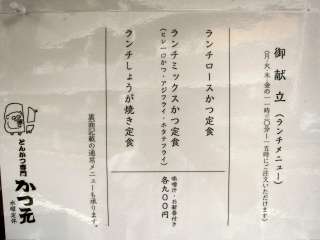 御献立(ランチメニュー)
(月・火・木・金の一一時三〇分~一五時にご注文いただけます)
ランチロースかつ定食
ランチミックスかつ定食
(ヒレ一口かつ・アジフライ・ホタテフライ)
ランチしょうが焼き定食
味噌汁・お新香付き
各九〇〇円
裏面記載の通常メニューも承ります。
とんかつ専門
かつ元
水曜定休